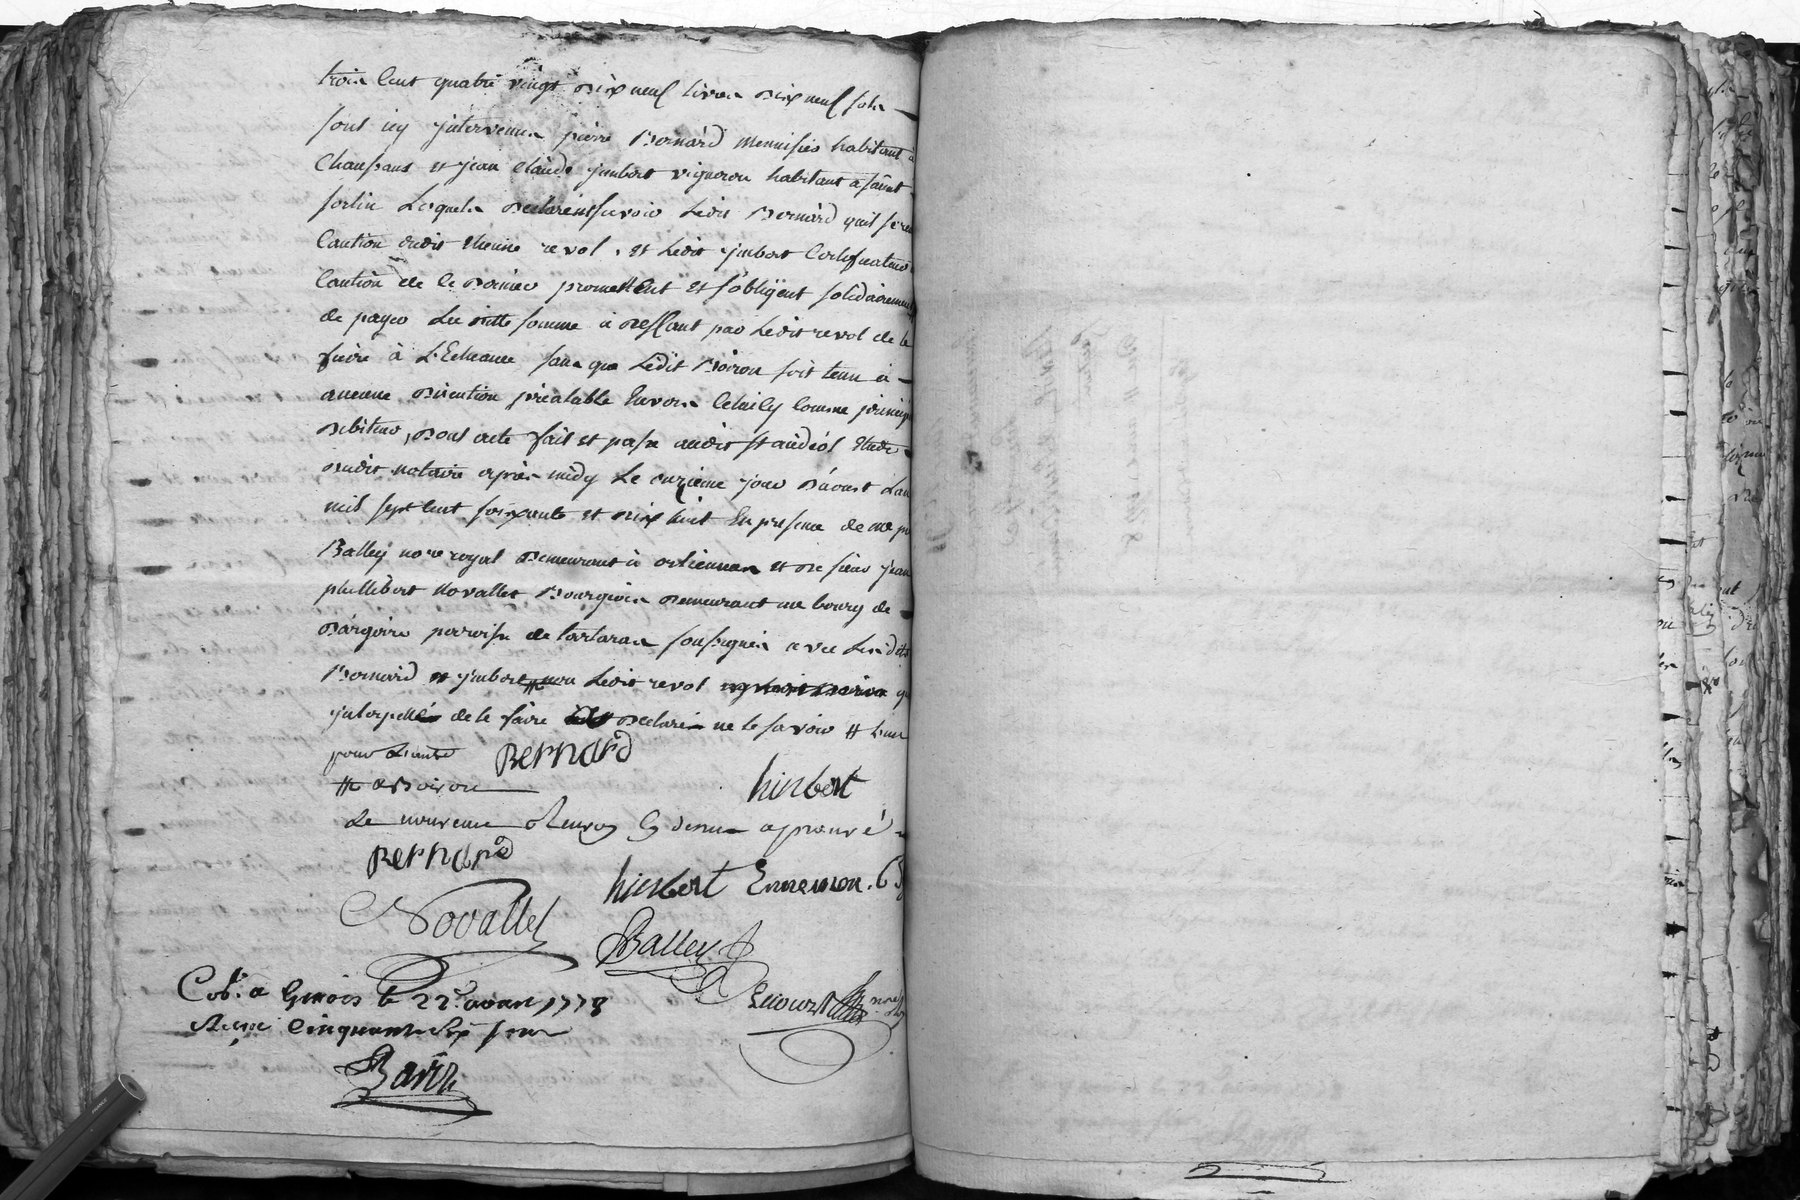 trois Cent quatre vingt dix neuf livres dix neuf sols
sont icy intervenus pierre Bernard Menuisier habitant à
Chaussans et jean Claude imbert vigneron habitant a saint
sorlin Lesquels declarent savoir Ledit Bernard quil se rend
Caution dudit Etienne revol, et Ledit imbert Certificateur
Caution de le dernier promettent et s'obligent solidairement
de payer La ditte somme a deffaut par Ledit revol de le
faire à L'Echeance sans que Ledit Boiron soit tenu à
aucune discution préalable Envers Celuicy Comme principal
debiteur, dont acte fait et passé audit st andéol Etude
dudit notaire après midy Le onzieme jour d'aoust L'an
mil sept Cent soixante et dix huit En presence de me
Balley nore royal demeurant à orliennas et de sieur jean
phillibert Novallet Bourgeois demeurant au bourg de
dargoire parroisse de tartaras soussignés avec Lesdits
Bernard et imbert Ledit revol
interpellé de le faire declaré ne le savoir #
pour L'autre BERNARD
# a Boiron hinbert
Le nouveau Renvoy Cy dessus aprouvé
BERNARD
hinbert Ennemon.
Novallet Balley
Col. a Givors le 22 aoust 1778
Reçu Cinquante Six sous